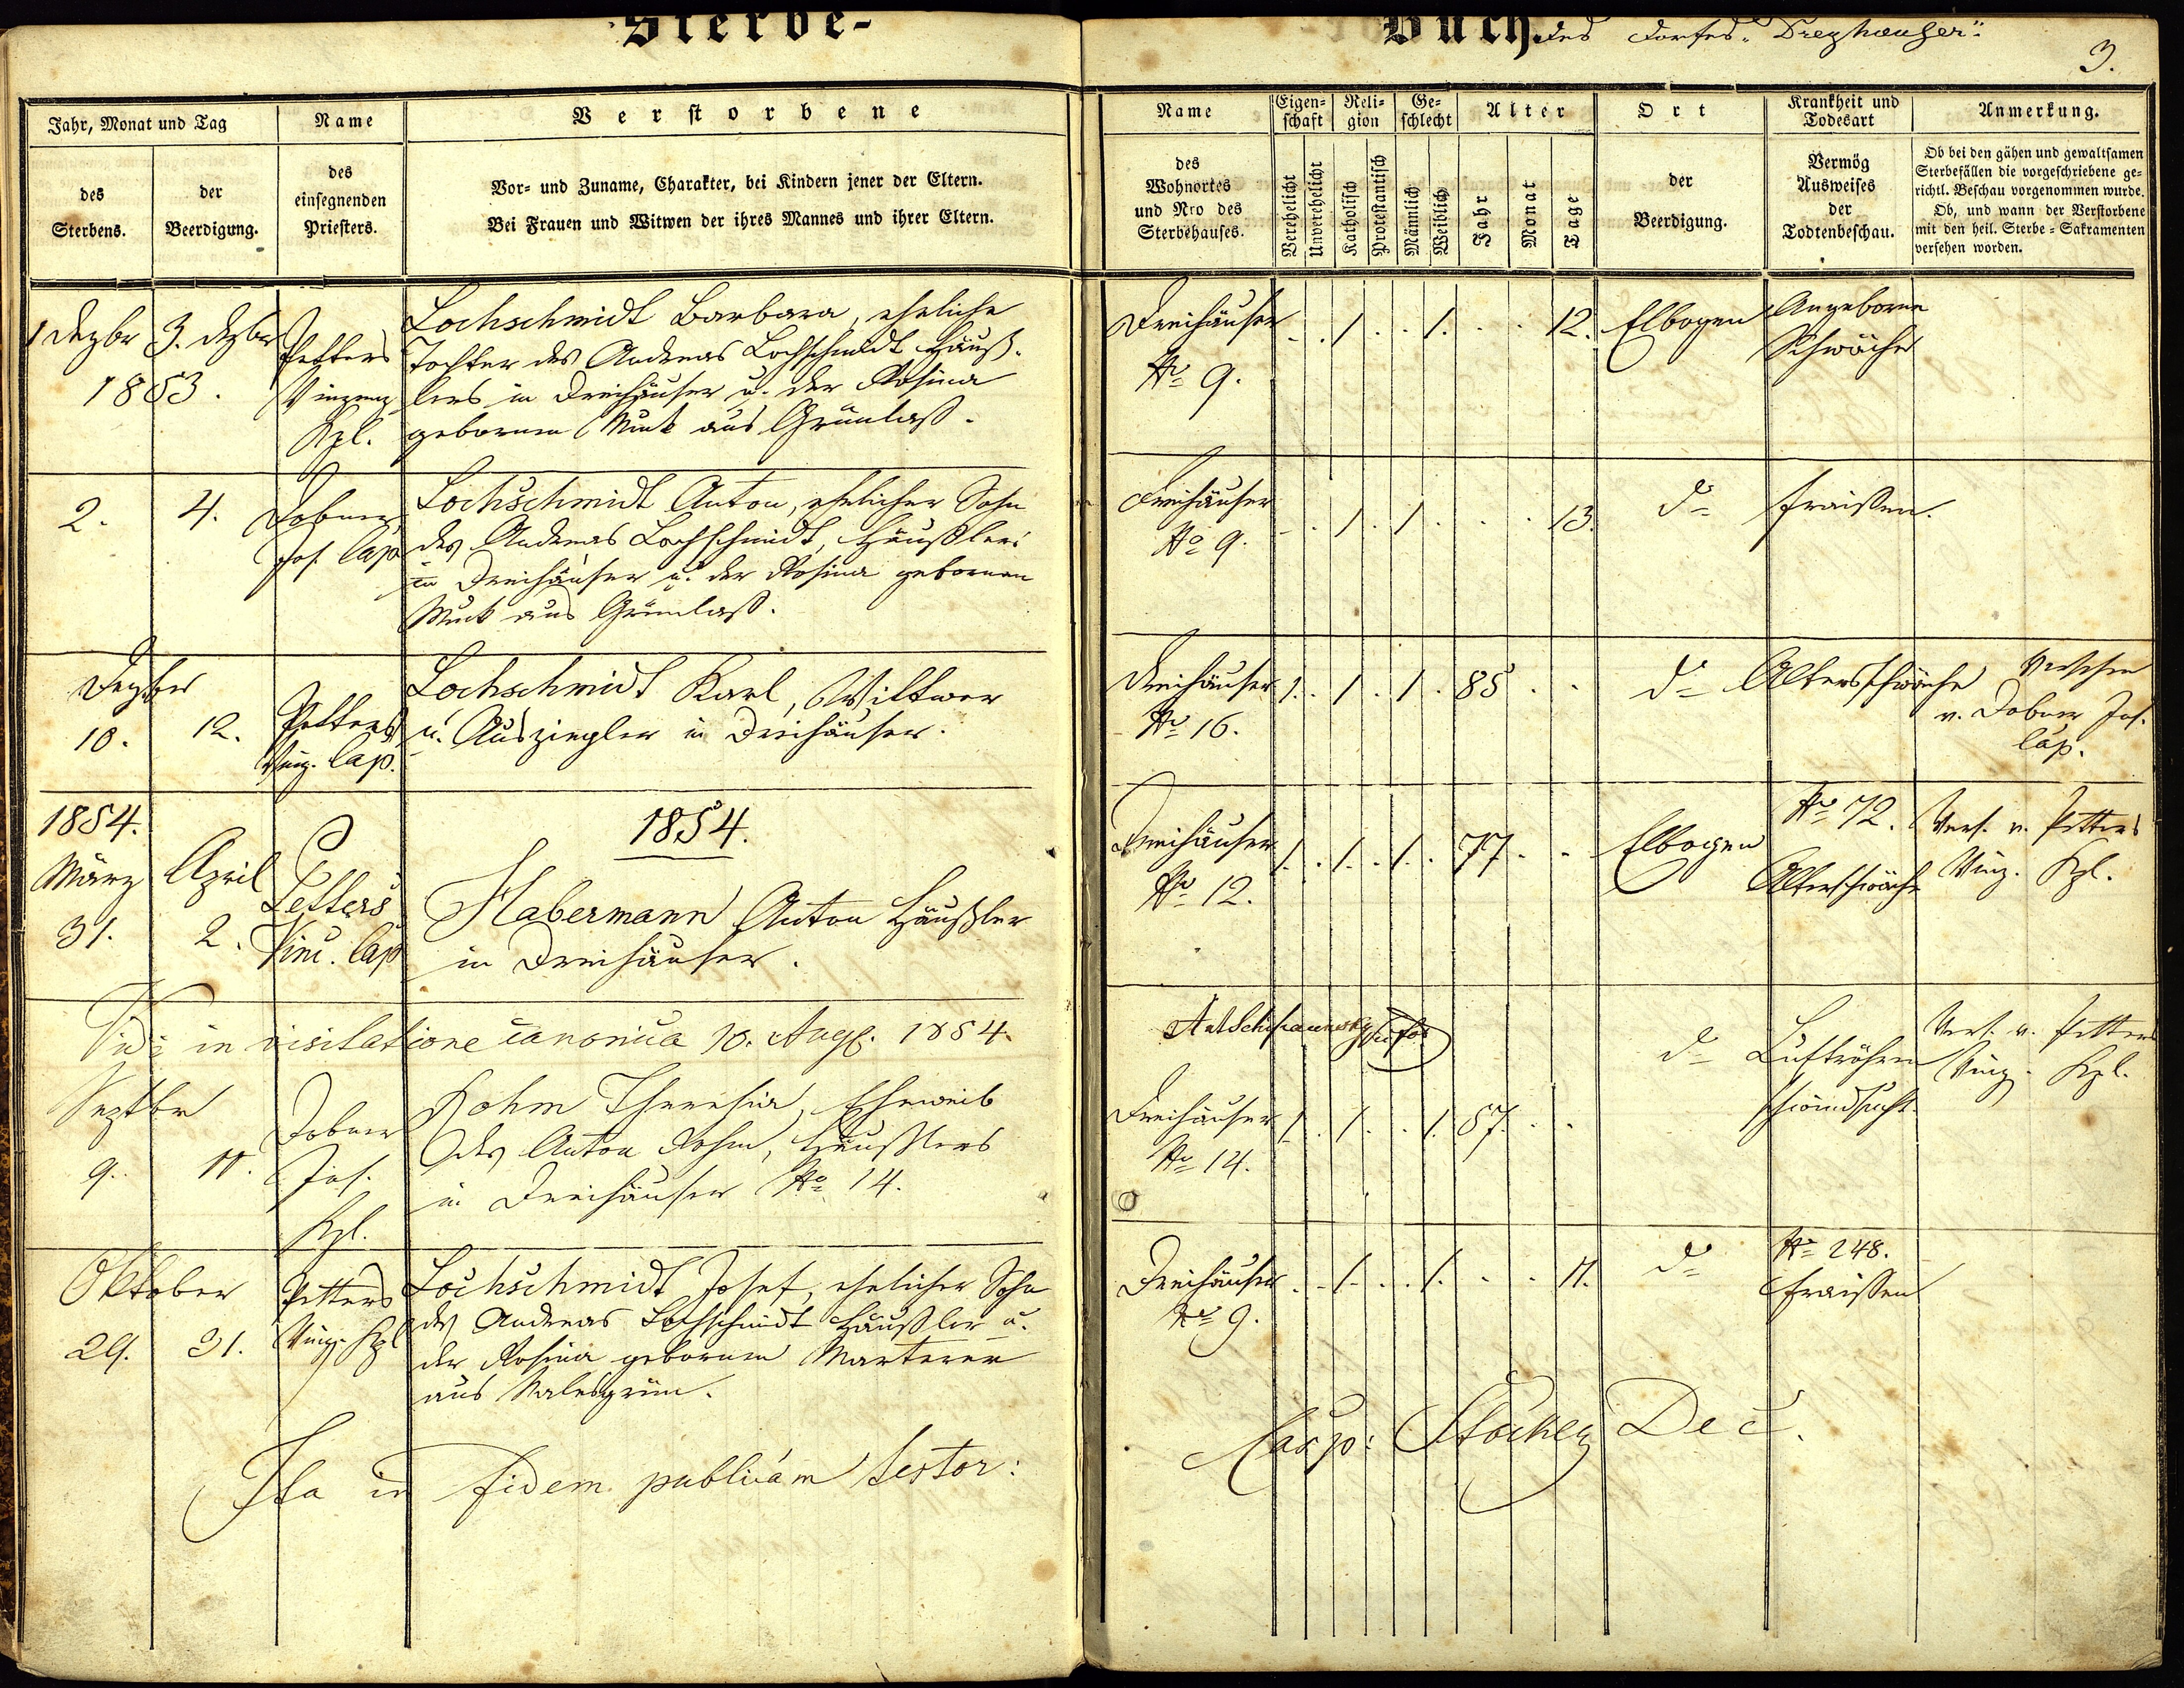 Sterbe-
Buch des Dorfes "Dreyhäuser"
3.
Jahr, Monat und Tag
Name
Verstorbene
des Sterbens.
der Beerdigung.
des
einsegnenden
Priesters.
Vor- und Zuname, Charakter, bei Kindern jener der Eltern.
Bei Frauen und Witwen der ihres Mannes und ihrer Eltern.
Name
des
Wohnortes
und Nro des
Sterbehauses.
Eigen=
schaft
Reli=
gion
Ge=
schlecht
Alter
Ort
Krankheit und
Todesart
Anmerkung.
Verehelicht
Unverehelicht
Katholisch
Protestantisch
Männlich
Weiblich
Jahr
Monat
Tage
der
Beerdigung.
Vermög
Ausweises
der
Todtenbeschau.
Ob bei den gähen und gewaltsamen
Sterbefällen die vorgeschriebene ge=
richtl. Beschau vorgenommen wurde.
Ob, und wann der Verstorbene
mit den heil. Sterbe=Sakramenten
versehen worden.
1 Dezbr 3. Dezbr
1853.
Petters
Vinzenz
Kpl.
Lochschmidt Barbara, eheliche
Tochter des Andreas Lochschmidt Häuß-
lers in Dreihäuser u. der Rosina
gebornen aus Grünlaß.
Dreihäuser
No 9.
1 1. 12.
Elbogen
Angeborne
Schwäche
2. 4.
Dobner
Jos. Cap
Lochschmidt Anton, ehelicher Sohn
des Andreas Lochschmidt, Häußlers
in Dreihäuser u. der Rosina gebornen
aus Grünlaß.
Dreihäuser
No 9.
1 1 13.
do
Fraißen.
Dezber
10. 12.
Petters
Vinz. Cap.
Lochschmidt Karl, Wittwer
u. Ausziegler in Dreihäuser.
Dreihäuser
No 16.
1. 1 1. 85
do
Altersschwäche
Versehen
v. Dobner Jos.
Cap.
1854.
März April
31. 2.
Petters
Vinc. Cap
1854.
Habermann Anton Häußler
in Dreihäuser.
Dreihäuser
No 12.
1. 1. 1. 77
Elbogen
No 72.
Altersschwäche
Vers. v. Petters
Vinz. Kpl.
Vidi in visitatione canonica 10. Aug. 1854.
Septbr
9. 11.
Dobner
Jos.
Kpl.
Rohm Theresia, Eheweib
des Anton Rohm, Häußlers
in Dreihäuser No 14.
Dreihäuser
No 14.
1. 1. 1. 57.
do
Luftröhren
schwindsucht.
Vers. v. Petters
Vinz. Kpl.
Oktober
29. 31.
Petters
Vinz. Kpl
Lochschmidt Josef, ehelicher Sohn
des Andreas Lochschmidt Häußler u.
der Rosina gebornen Marterer
aus
Dreihäuser
No 9.
1. 1. 11.
do
No 248.
Fraissen
Ita in fidem publicam testor:
Casp: Stöckl Dec.